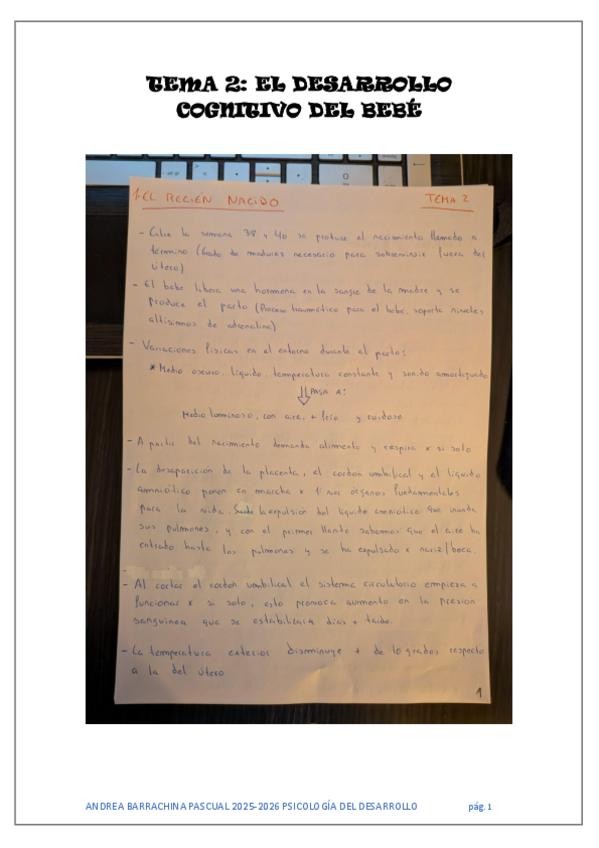 TEMA 2: EL DESARROLLO
COGNITIVO DEL BEBÉ
1-EL RECIÉN NACIDO TEMA 2
- Entre la semana 38 y 40 se produce el nacimiento llamado a
término (Grado de madurez necesario para sobrevivir fuera del
útero)
- El bebé libera una hormona en la sangre de la madre y se
produce el parto (Proceso traumático para el bebé, soporta niveles
altísimos de adrenalina)
- Variaciones físicas en el entorno durante el parto:
* Medio oscuro, líquido, temperatura constante y sonido amortiguado
PASA A:
Medio luminoso, con aire, + frío y ruidoso
- A partir del nacimiento demanda alimento y respira x si solo
- La desaparición de la placenta, el cordón umbilical y el líquido
amniótico ponen en marcha x 1ª vez órganos fundamentales
para la vida. la expulsión del líquido amniótico que inunda
sus pulmones, y con el primer llanto sabemos que el aire ha
entrado hasta los pulmones y se ha expulsado x nariz/boca.
- Al cortar el cordón umbilical el sistema circulatorio empieza a
funcionar x si solo, esto provoca aumento en la presión
sanguínea que se estabilizará días + tarde.
- La temperatura exterior disminuye + de 10 grados respecto
a la del útero
1
ANDREA BARRACHINA PASCUAL 2025-2026 PSICOLOGÍA DEL DESARROLLO pág. 1